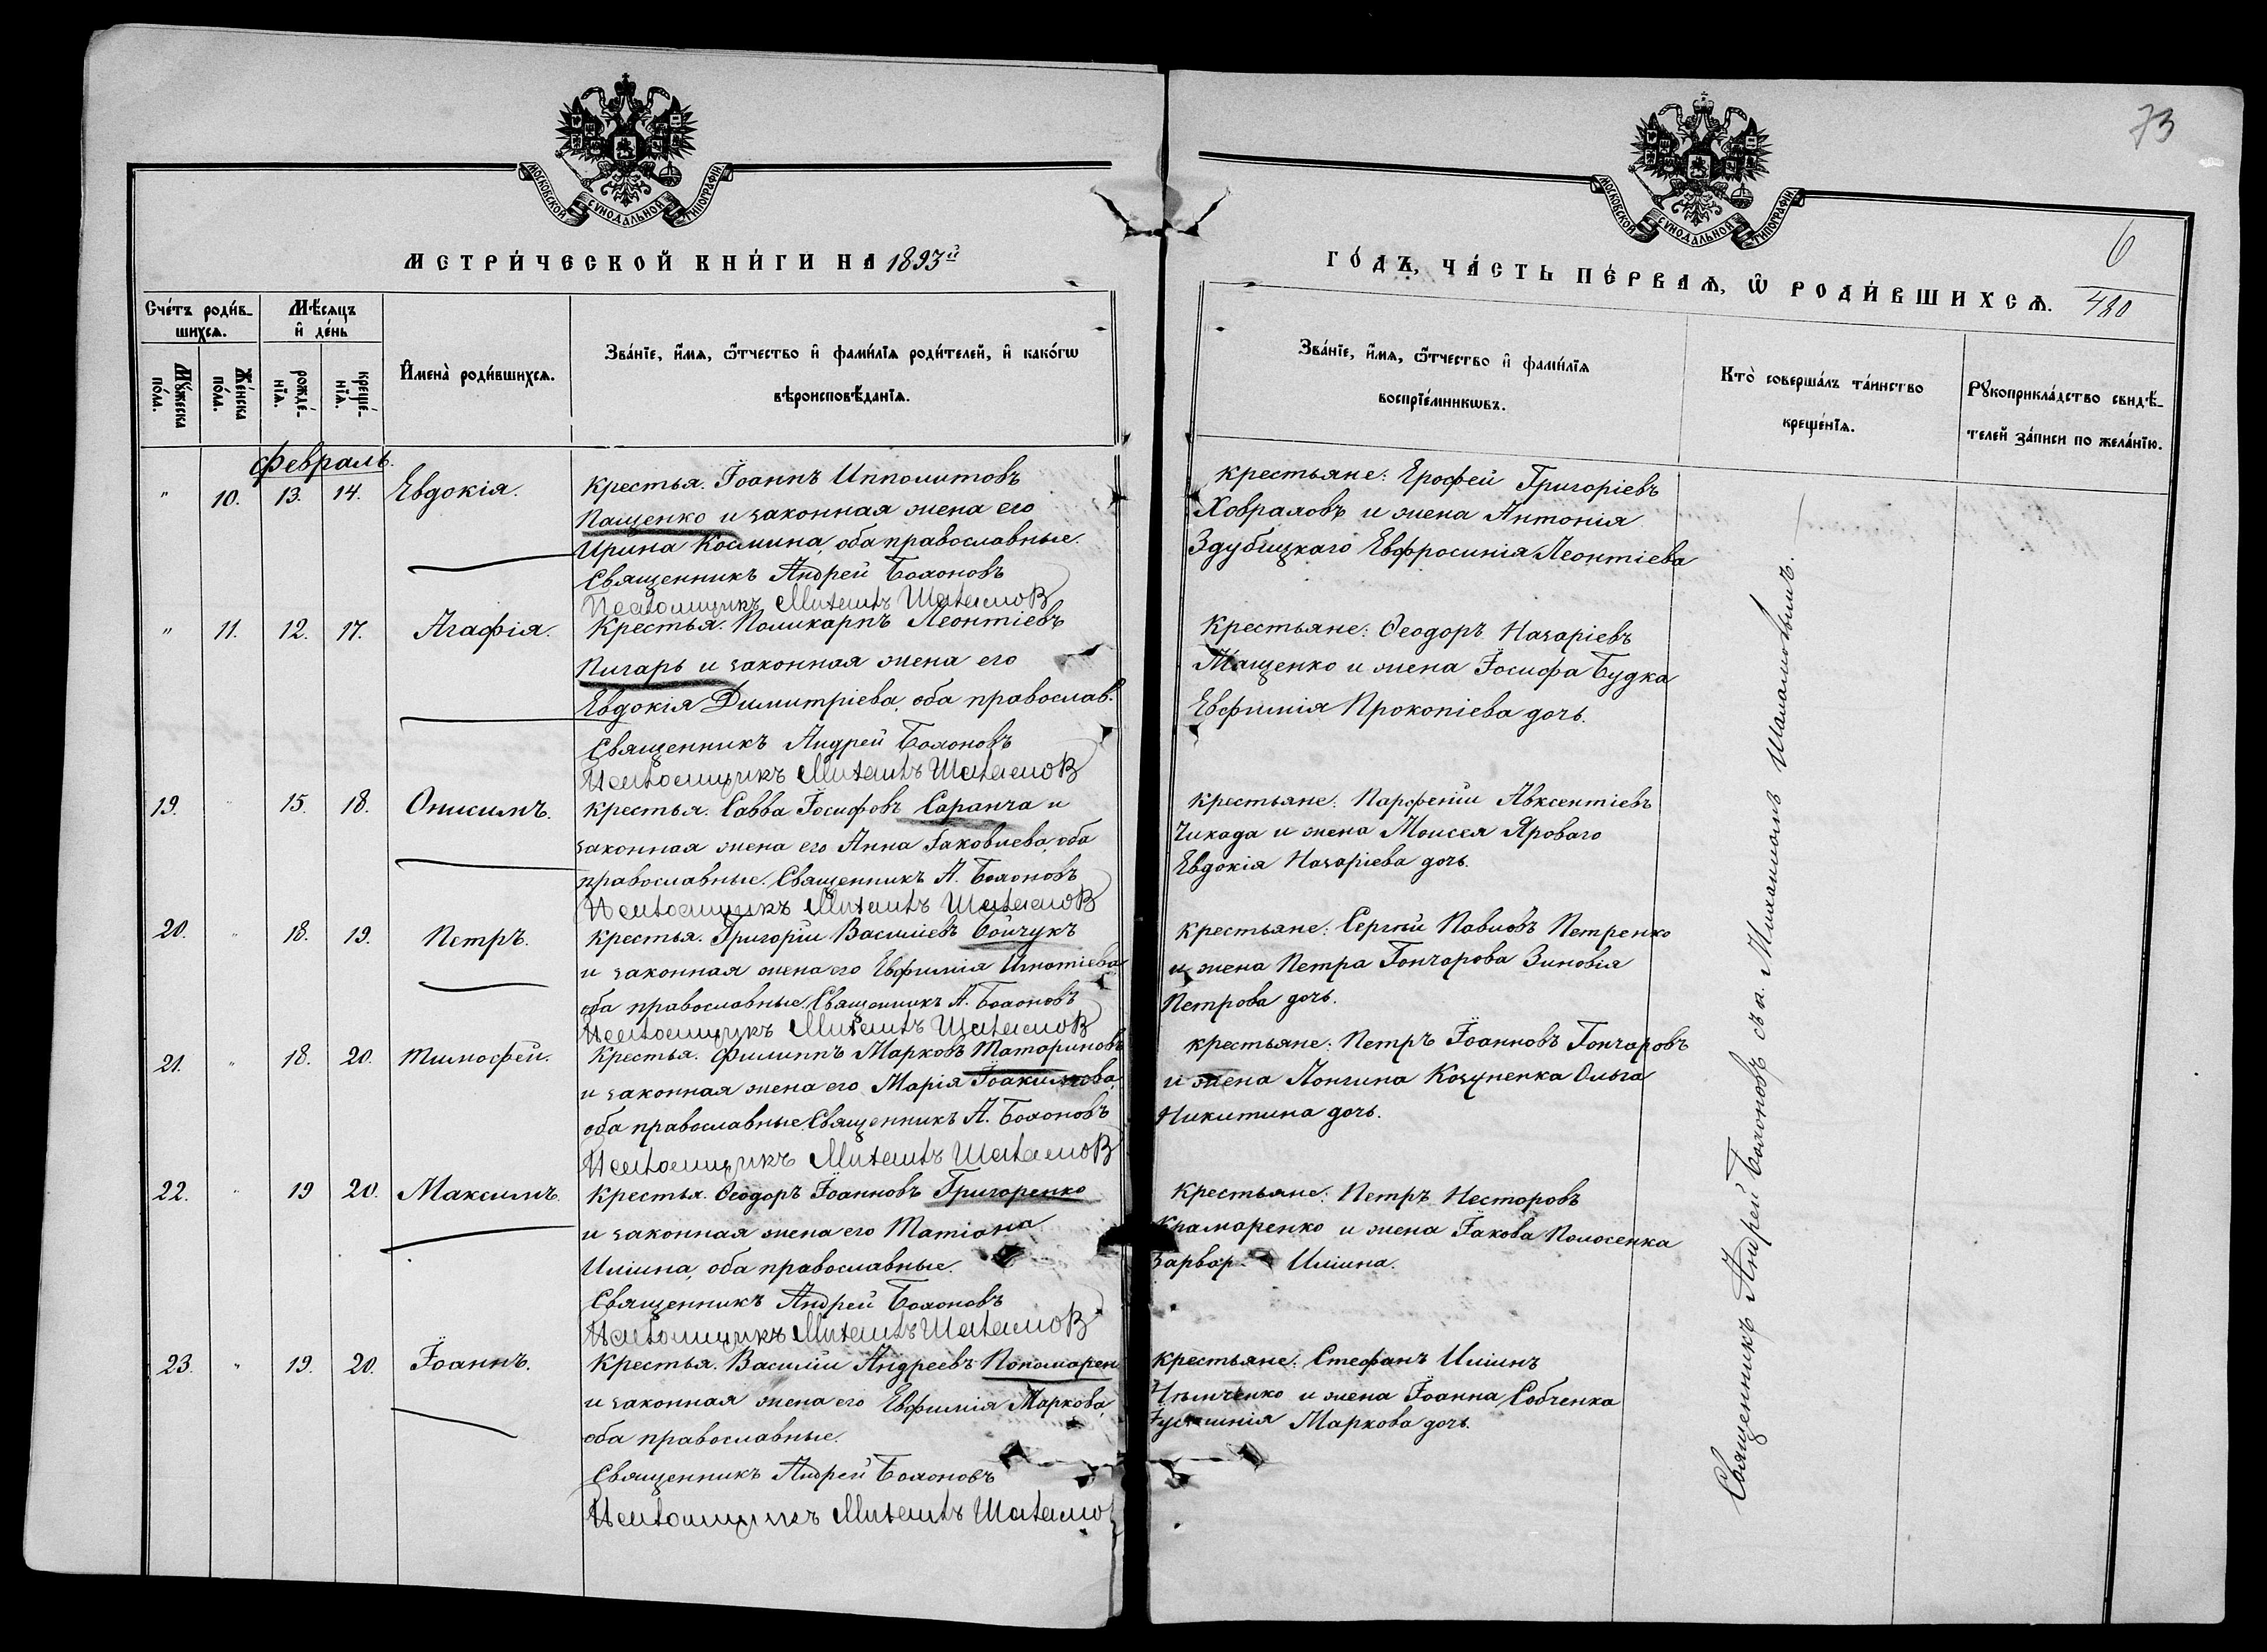 73
МОСКОВСКОЙ СУНОДАЛЬНОЙ ТИПОГРАФІИ.
МОСКОВСКОЙ СУНОДАЛЬНОЙ ТИПОГРАФІИ.
МЕТРИ́ЧЕСКОЙ КНИ́ГИ НА 1893й
ГО́ДЪ, ЧА́СТЬ ПЕ́РВАѦ, Ѡ҆ РОДИ́ВШИХСѦ.
6
480
Сче́тъ роди́в-
шихсѧ.
Мꙋ́жеска
по́ла.
Же́нска
по́ла.
Мѣ́сѧцъ
и҆ де́нь
рожде́-
нїѧ.
креще́-
нїѧ.
И҆мена̀ роди́вшихсѧ.
Зва́нїе, и҆́мѧ, ѻ҆́тчество и҆ фами́лїѧ роди́телей, и҆ како́гѡ
вѣроисповѣ́данїѧ.
Зва́нїе, и҆́мѧ, ѻ҆́тчество и҆ фами́лїѧ
воспрїе́мникѡвъ.
Кто̀ соверша́лъ та́инство
креще́нїѧ.
Рꙋкоприкла́дство свидѣ́-
телей за́писи по жела́нїю.
Февраль.
" 10. 13. 14. Евдокія.
Крестья. Іоаннъ Ипполитовъ
Пащенко и законная жена его
Ирина Космина, оба православные.
Священникъ Андрей Болоновъ
Псаломщикъ Михаилъ Шаламов
крестьяне: Ерофей Григоріевъ
Ховраловъ и жена Антонія
Здубицкаго Евфросинія Леонтіева
" 11. 12. 17. Агафія.
Крестья. Поликарпъ Леонтіевъ
Пигарь и законная жена его
Евдокія Димитріева, оба православ.
Священникъ Андрей Болоновъ
Псаломщикъ Михаилъ Шаламов
Крестьяне: Ѳеодоръ Назаріевъ
Мащенко и жена Іосифа Будка
Евфимія Прокопіева дочь.
19. " 15. 18. Онисимъ.
Крестья. Савва Іосифовъ Саранча и
законная жена его Анна Іаковлева, оба
православные. Священникъ А. Болоновъ
Псаломщикъ Михаилъ Шаламов
крестьяне: Парфеній Авксентіевъ
Чикада и жена Моисея Яроваго
Евдокія Назаріева дочь.
20. " 18. 19. Петръ.
Крестья. Григорій Василіевъ Бойчукъ
и законная жена его Евфимія Игнатіева
оба православные. Священникъ А. Болоновъ
Псаломщикъ Михаилъ Шаламов
крестьяне: Сергѣй Павловъ Петренко
и жена Петра Гончарова Зиновія
Петрова дочь.
21. " 18. 20. Тимофей.
Крестья. Филиппъ Марковъ Татариновъ
и законная жена его Марія Іоакимова,
оба православные. Священникъ А. Болоновъ
Псаломщикъ Михаилъ Шаламов
крестьяне: Петръ Іоанновъ Гончаровъ
и жена Лонгина Козупенка Ольга
Никитина дочь.
22. " 19 20. Максимъ.
Крестья. Ѳеодоръ Іоанновъ Григоренко
и законная жена его Татіана
Иліина, оба православные.
Священникъ Андрей Болоновъ
Псаломщикъ Михаилъ Шаламов
крестьяне: Петръ Несторовъ
Крамаренко и жена Іакова Полосенка
Варвар Иліина.
23. " 19. 20. Іоаннъ.
Крестья. Василій Андреевъ Пономарен
и законная жена его Евфимія Маркова,
оба православные.
Священникъ Андрей Болоновъ
Псаломщикъ Михаилъ Шаламо
крестьяне: Стефанъ Иліинъ
и жена Іоанна Собченка
Маркова дочь.
Священникъ Андрей Болоновъ съ п. Михаиломъ Шаламовымъ.